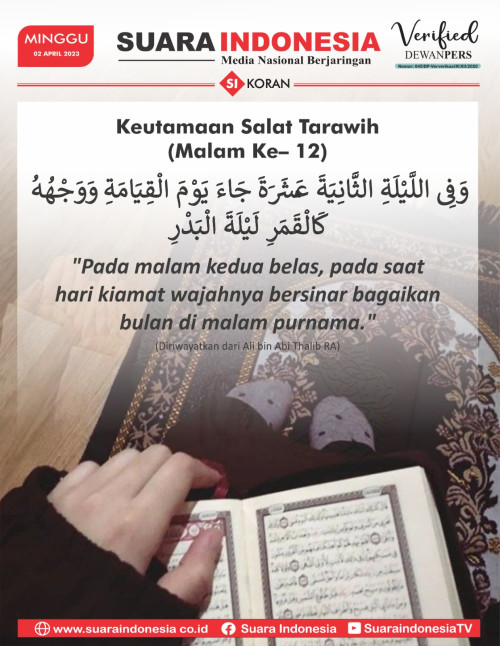 MINGGU
02 APRIL 2023
SUARA INDONESIA
Media Nasional Berjaringan
Verified
DEWANPERS
SI KORAN
Keutamaan Salat Tarawih
(Malam Ke– 12)
وَفِى اللَّيْلَةِ الثَّانِيَةَ عَشَرَةَ جَاءَ يَوْمَ الْقِيَامَةِ وَوَجْهُهُ
كَالْقَمَرِ لَيْلَةَ الْبَدْرِ
"Pada malam kedua belas, pada saat
hari kiamat wajahnya bersinar bagaikan
bulan di malam purnama."
(Diriwayatkan dari Ali bin Abi Thalib RA)
www.suaraindonesia.co.id Suara Indonesia SuaraindonesiaTV